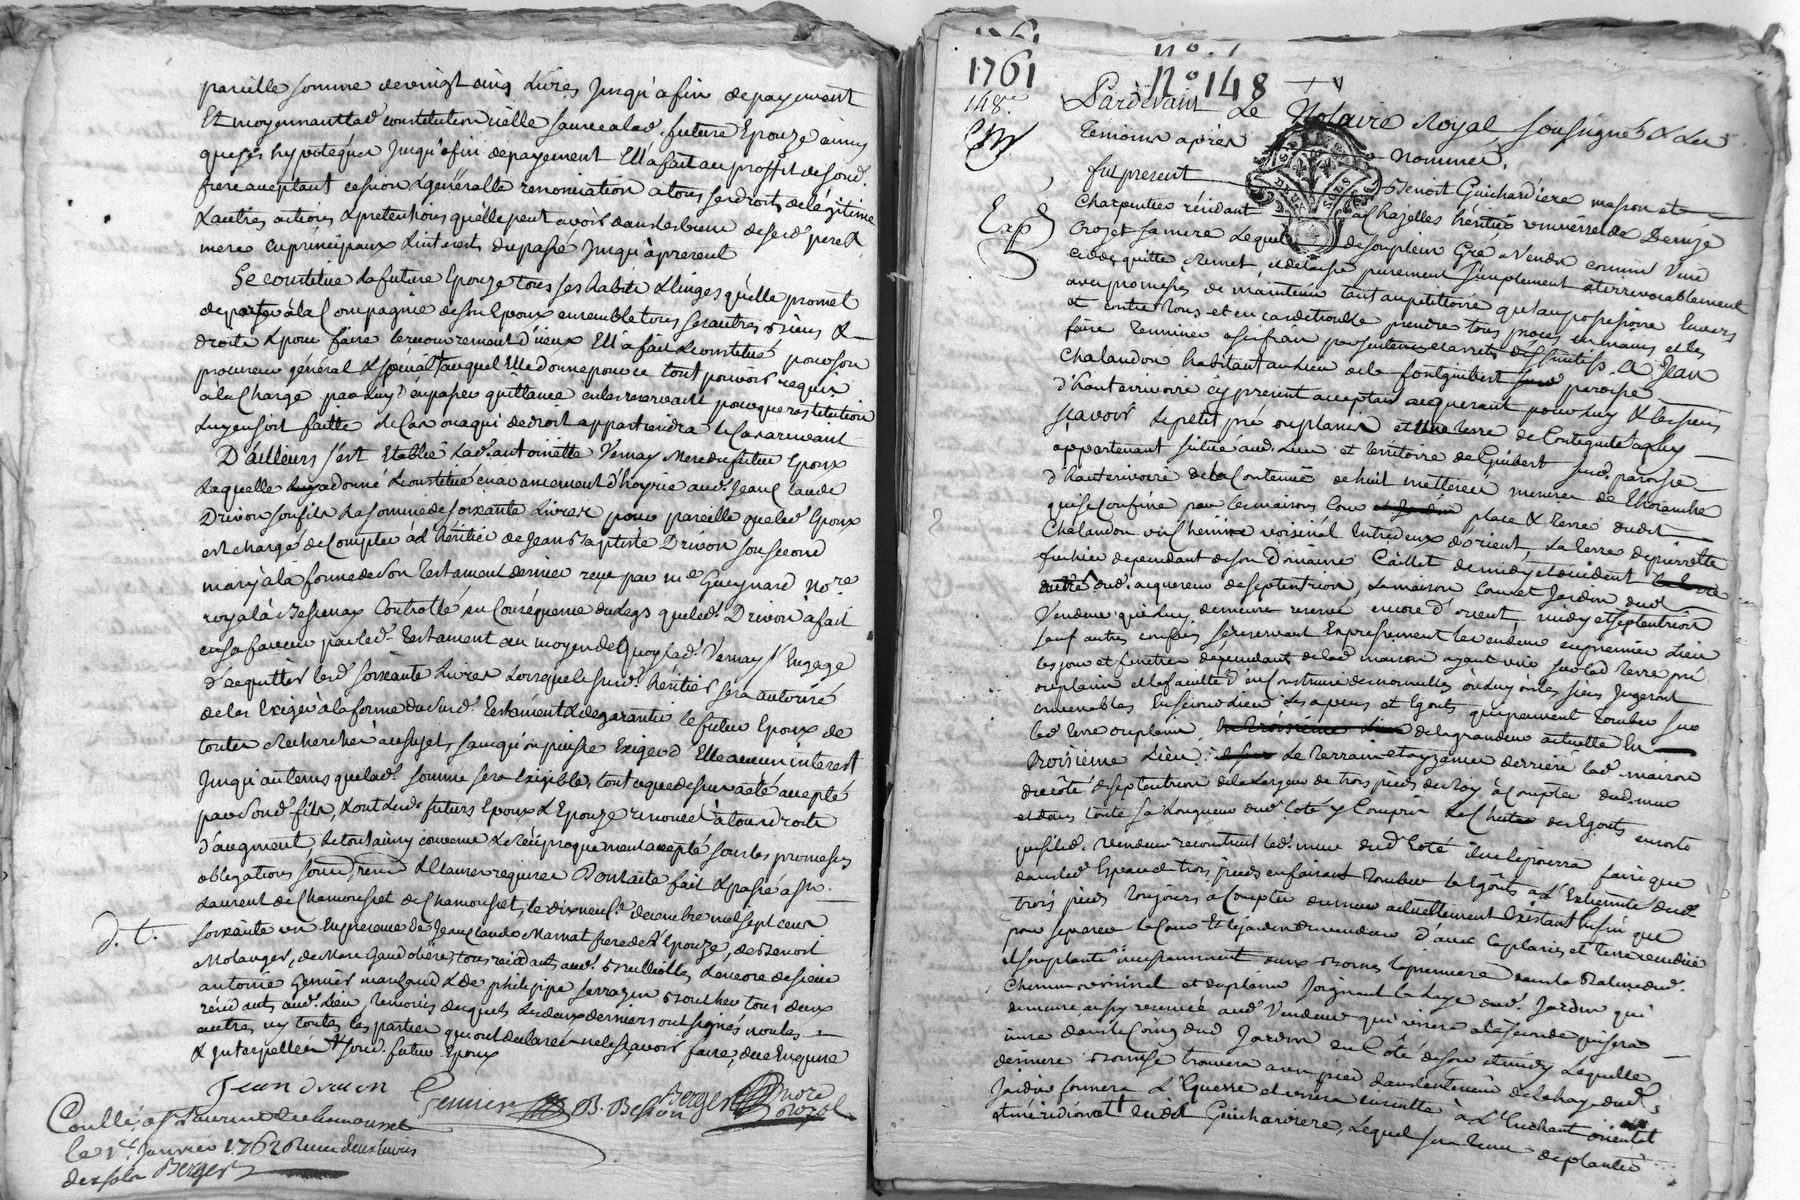 pareille somme de vingt cinq Livres Jusqu'à fin de payement
Et moyennant lad. constitution icelle sauve alad. future Epouze ainsy
que ses hypoteques Jusqu'à fin de payement Ell'a fait au proffit de sond.
frere acceptant cession & généralle renonciation a tous ses droits de légitime
& autres actions & pretentions qu'elle peut avoir dans les biens de sesd. pere &
mere en principaux & interests du passé Jusqu'à present
Se constitue La future Epouze tous ses habits & linges qu'elle promet
de porter à la Compagnie de son Epoux ensemble tous ses autres biens &
droits & pour faire le recouvrement d'iceux Ell'a fait & constitué pour son
procureur général & spécial auquel Elle donne pour ce tout pouvoir requis
à la Charge par luy d'en passer quittance en les recevant pour que restitution
Luy en soit faitte le Cas ou a qui de droit appartiendra le Cas arrivant
D'ailleurs s'est Etablie Lad. antoinette Vernay Mere du futur Epoux
Laquelle a donné & constitué en avancement d'hoyrie aud. Jean Claude
Drivon son fils La somme de soixante Livres pour pareille que led. Epoux
est chargé de Compter à l'héritier de Jean Baptiste Drivon son second
mary à la forme de son Testament dernier reçu par me. Gueynard no.re
royal à Bessenay Controllé, en Conséquence du Legs que led. Drivon a fait
en sa faveur par led. Testament au moyen de Quoy lad. Vernay s'Engage
d'acquitter lesd. soixante Livres Lorsque le susd. héritier sera autorisé
de les Exiger à la forme du susd. Testament & de garantir le futur Epoux de
toutes Recherches au sujet, sans qu'on puisse Exiger d'Elle aucun interest
Jusqu'au tems que lad. somme sera Exigible, tout ce que dessus a été accepté
par sond. fils, & ont Lesd. futurs Epoux & Epouze renoncé à tous droits
d'augment Le tout ainsy convenu & réciproquement accepté sous les promesses
obligations soumi, renon & Clauses requises Dont acte fait & passé a st.
Laurent de Chamousset de Chamousset, le dix neuf decembre mil sept cent
soixante un En presence de Jean Claude Marnat frere de l'Epouze, de Benoit
Molanger, de Marc Gaudobere, tous residants aud. Brullioles & encore de sieur
antoine Genier marchand & de philippe ferrazin Boucher tous deux
résidants aud. Lieu, Temoins desquels Les deux derniers ont signés non les
autres ny toutes les parties qui ont declarés ne le sçavoir faire, de ce Enquis
& Interpellés sauf sond. futur Epoux
D. t.
Jean drivon
Genier
B. Besson
Berger
nore royal
Conllé, a st Laurent de chamousset
le 1er Janvier 1762 Reçu deux livres
dix sols Berger
1761
N° 148
148e
Exp
Pardevant Le Notaire Royal soussigné & Les
Temoins apres nommés,
fut present Benoit Guichardiere masson et
Charpentier résidant a Chazelles héritier universel de Denise
Crozet sa mere Lequel de son plein Gré a Vendu comme Vend
cedde, quitte, Remet, et delaisse purement simplement et irrevocablement
avec promesses de maintenir tant au petitoire qu'au possessoire Envers
et contre tous et en cas de trouble prendre tous procès en mains et les
faire terminer a ses frais par sentences et arrets deffinitifs. A Jean
Chalandon habitant au Lieu de la fontguibert paroisse
d'hauterivoire cy present acceptant acquerant pour luy & les siens
sçavoir Le petit pré ou planis et Une terre de Contigüité a luy
appartenant située aud. Lieu et territoire de Guibert susd. paroisse
d'hauterivoire de la Contenue de huit metterées mesure de
qui se Confine par les maisons Cour place & terre dudit
Chalandon un Chemin voisinal Entre deux d'orient, La terre de pierrette
dependant de son Domaine Caillet de midy et occident
dud. acquereur de septentrion, La maison cour et Jardin dud.
Vendeur qui luy demeure reservé encore d'orient, midy et septentrion
sauf autres confins se reservant Expressement le vendeur en premier Lieu
les jours et fenetres dépendants de lad. maison ayant vue sur lad. terre pré
ou planis et la faculté d'en Construire de nouvelles où luy ou les siens Jugeront
convenables En second Lieu Les apues et Egouts qui peuvent tomber sur
lad. terre ou planis, de la grandeur actuelle En
troisieme Lieu, Le terrain et ayzance derriere lad. maison
du côté de septentrion de la Largeur de trois pieds de roy à Compter dud. mur
et dans toute sa Longueur dud. Coté y Compris La Chute des Egouts en sorte
que si led. vendeur reconstruit led. mur dud. Coté il ne le pourra faire que
dans led. Espace de trois pieds en faisant tomber les Egouts à l'Extremité desd.
trois pieds toujours a Compter du mur actuellement Existant Enfin que
pour separer la Cour et le Jardin du vendeur d'avec le planis et terre vendue
il sera planté incessamment deux bornes la premiere dans la Balme du
Chemin voisinal et du planis Joignant la haye dud. Jardin qui
demeure aussy reservée aud. Vendeur qui visera a la seconde qui sera
mise dans le Coing dud. Jardin du Côté de soir et midy Laquelle
derniere borne se trouvera a un pied dans l'enterieur de la haye dud.
Jardin formera l'Equerre et visera ensuitte à l'Enchant orientet
& méridional dudit Guichardiere, Lequel sera tenu de planter